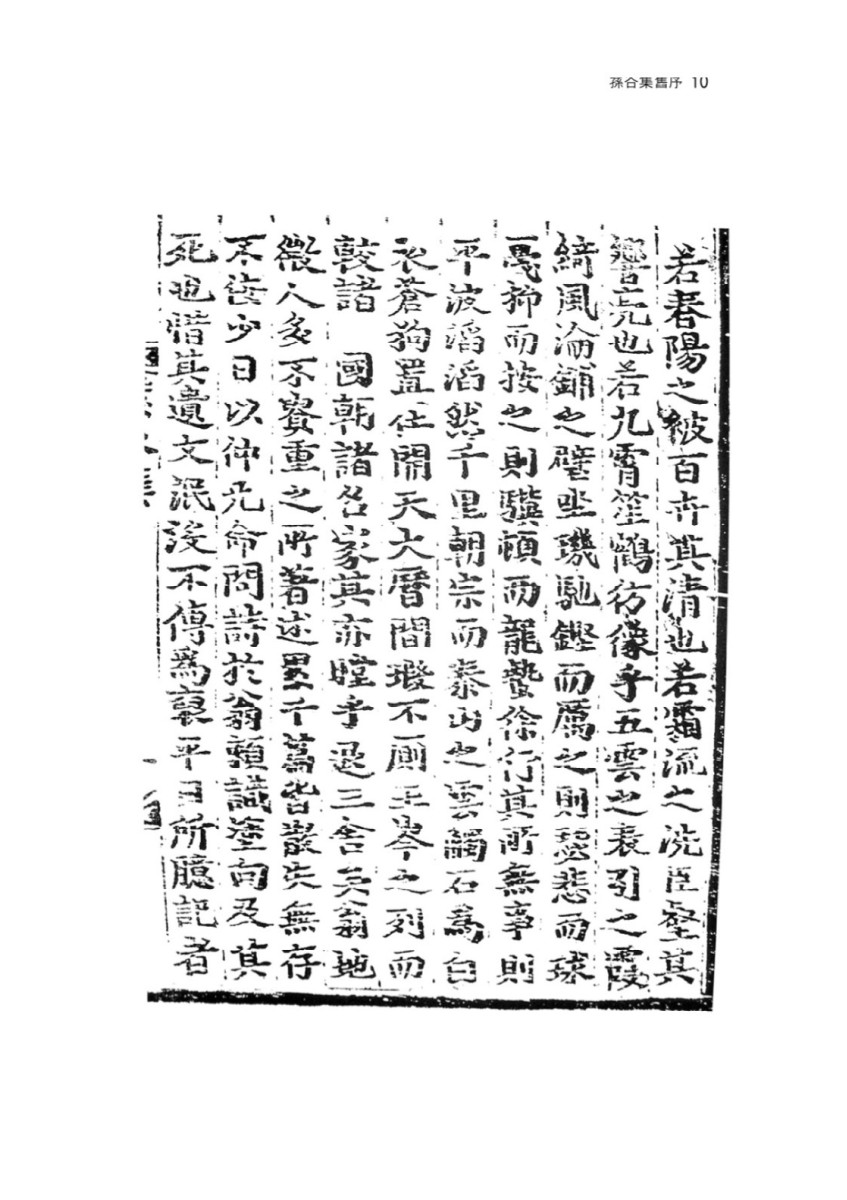 孫谷集舊序 10
若春陽之被百卉其清也若霜流之洗巨壑其
響亮也若九霄笙鶴彷像乎五雲之表引之霞
綺風淪鋪之璧坐璣馳鏗而厲之則瑟悲而球
戛抑而按之則驥頓而龍蟄徐行其所無事則
平波滔滔然千里朝宗而泰山之雲觸石爲白
衣蒼狗置在開天大曆間瑕不厠王岑之列而
較諸 國朝諸名家其亦瞠乎退三舍矣翁地
微人多不賚重之所著述累千篇皆散失無存
不佞少日以仲兄命問詩於翁賴識塗向及其
死也惜其遺文泯沒不傳爲裒平日所臆記者